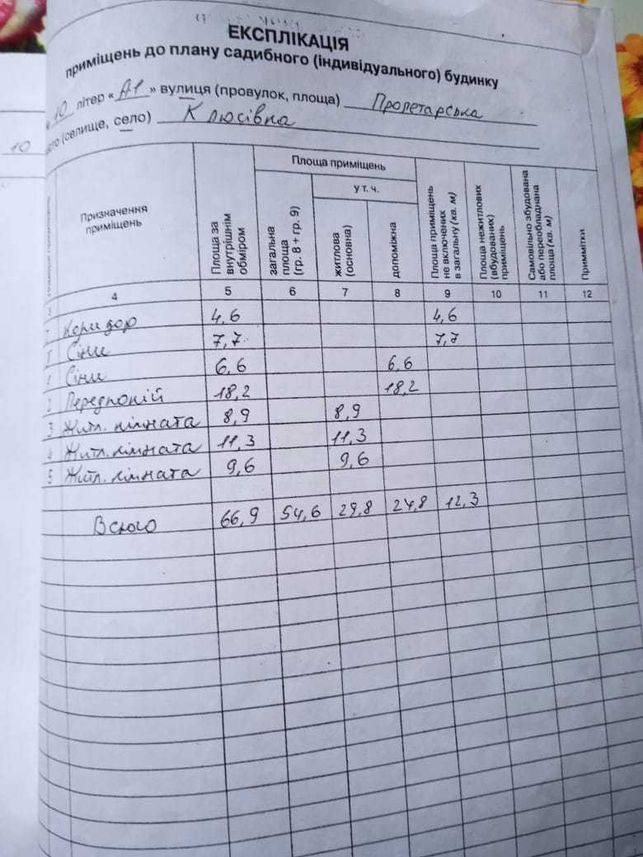 ЕКСПЛІКАЦІЯ
приміщень до плану садибного (індивідуального) будинку
10 літер « А1 » вулиця (провулок, площа) Пролетарська
(селище, село) Клюсівка
10
Призначення приміщень
Площа за внутрішнім обміром
Площа приміщень
загальна площа (гр. 8 + гр. 9)
у т. ч.
житлова (основна)
допоміжна
Площа приміщень не включених в загальну (кв. м)
Площа нежитлових (вбудованих) приміщень
Самовільно збудована або переобладнана площа (кв. м)
Приммітки
4 5 6 7 8 9 10 11 12
Коридор 4,6 4,6
І Сіни 7,7 7,7
1 Сіни 6,6 6,6
2 Передпокій 18,2 18,2
3 Житл. кімната 8,9 8,9
4 Житл. кімната 11,3 11,3
5 Житл. кімната 9,6 9,6
Всього 66,9 54,6 29,8 24,8 12,3